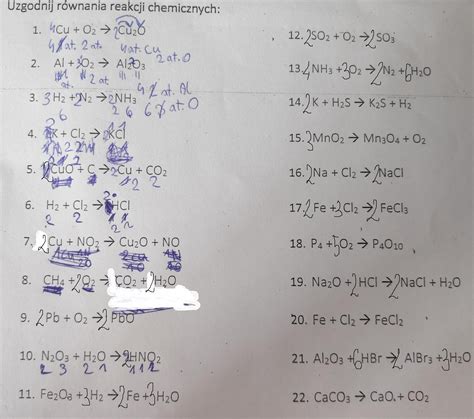 Uzgodnij równania reakcji chemicznych:
1. 4Cu + O2 → 2Cu2O
4 at. 2 at. 4 at. Cu
2. Al + O2 → Al2O3 2 at. O
2 at
3. 3H2 + N2 → 2NH3
6 2 6 at. O
4. K + Cl2 → 2KCl
5. 2CuO + C → 2Cu + CO2
2 2
6. H2 + Cl2 → HCl
2 2
7. 2Cu + NO2 → Cu2O + NO
8. CH4 + 2O2 → CO2 + 2H2O
9. 2Pb + O2 → 2PbO
10. N2O3 + H2O → 2HNO2
2 3 2 1 1 1 2
11. Fe2O3 + 3H2 → 2Fe + 3H2O
12. 2SO2 + O2 → 2SO3
13. 4NH3 + 3O2 → 2N2 + 6H2O
14. 2K + H2S → K2S + H2
15. 3MnO2 → Mn3O4 + O2
16. 2Na + Cl2 → 2NaCl
17. 2Fe + 3Cl2 → 2FeCl3
18. P4 + 5O2 → P4O10
19. Na2O + 2HCl → 2NaCl + H2O
20. Fe + Cl2 → FeCl2
21. Al2O3 + 6HBr → 2AlBr3 + 3H2O
22. CaCO3 → CaO + CO2